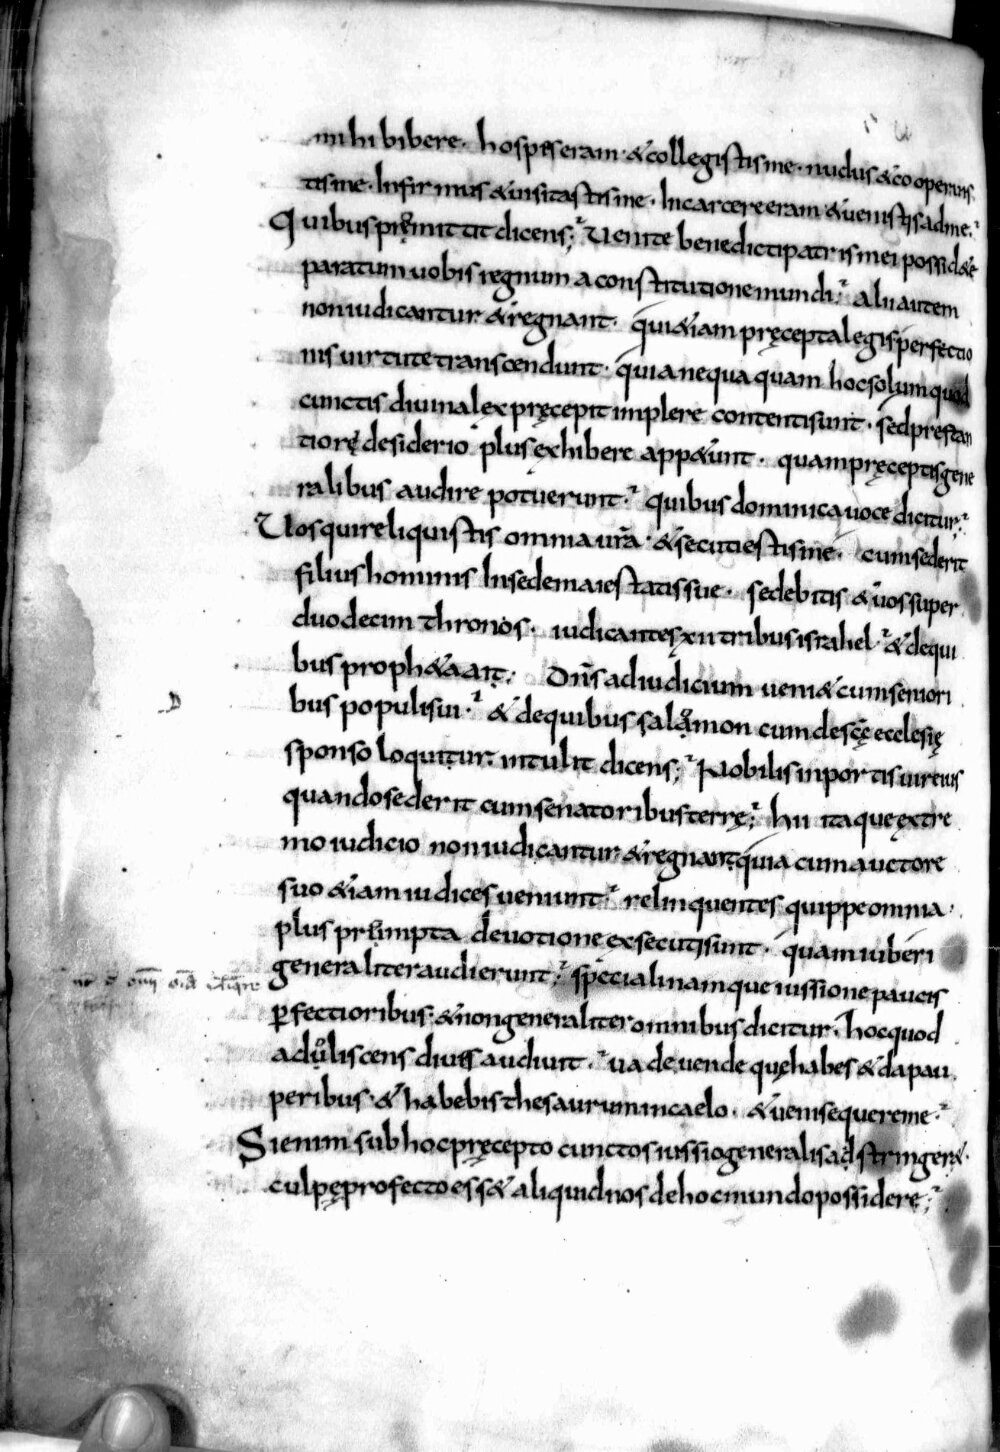 mihi bibere. hospes eram. & collegistis me. nudus & cooperuis
tis me. Infirmus & uisitastis me. In carcere eram & uenistis ad me.
Quibus pręmittit dicens; Uenite benedicti patris mei possid&e
paratum uobis regnum a constitutione mundi. alii autem
non iudicantur & regnant. qui &iam pręcepta legis perfectio
nis uirtute transcendunt. quia nequaquam hoc solum quod
cunctis diuina lex pręcepit implere contenti sunt. sed prestan
tiorę desiderio plus exhibere app&unt. quam pręceptis gene
ralibus audire potuerunt. quibus dominica uoce dicitur;
Uos qui reliquistis omnia ur̄a. & secuti estis me. cum sederit
filius hominis In sede maiestatis suę. sedebitis & uos super
duodecim thronos. iudicantes xii tribus israhel. & de qui
bus proph&a ait; Dn̄s ad iudicium ueni& cum seniori
bus populi sui. & de quibus salomon cum de scę̄ ecclesię
sponso loquitur. intulit dicens; Nobilis in portis uir eius
quando sederit cum senatoribus terrę; hii itaque extre
mo iudicio non iudicantur & regnant quia cum auctore
suo &iam iudices ueniunt. relinquentes quippe omnia.
plus prompta deuotione exsecuti sunt. quam iuberi
generaliter audierunt; speciali namque iussione paucis
ꝑfectioribus. & non generaliter omnibus dicitur. hoc quod
aduliscens diues audiuit. uade uende quę habes & da pau
peribus. & habebis thesaurum in caelo. & ueni sequere me.
Si enim sub hoc pręcepto cunctos iussio generalis adstringer&.
culpę profecto ess& aliquid nos de hoc mundo possidere;